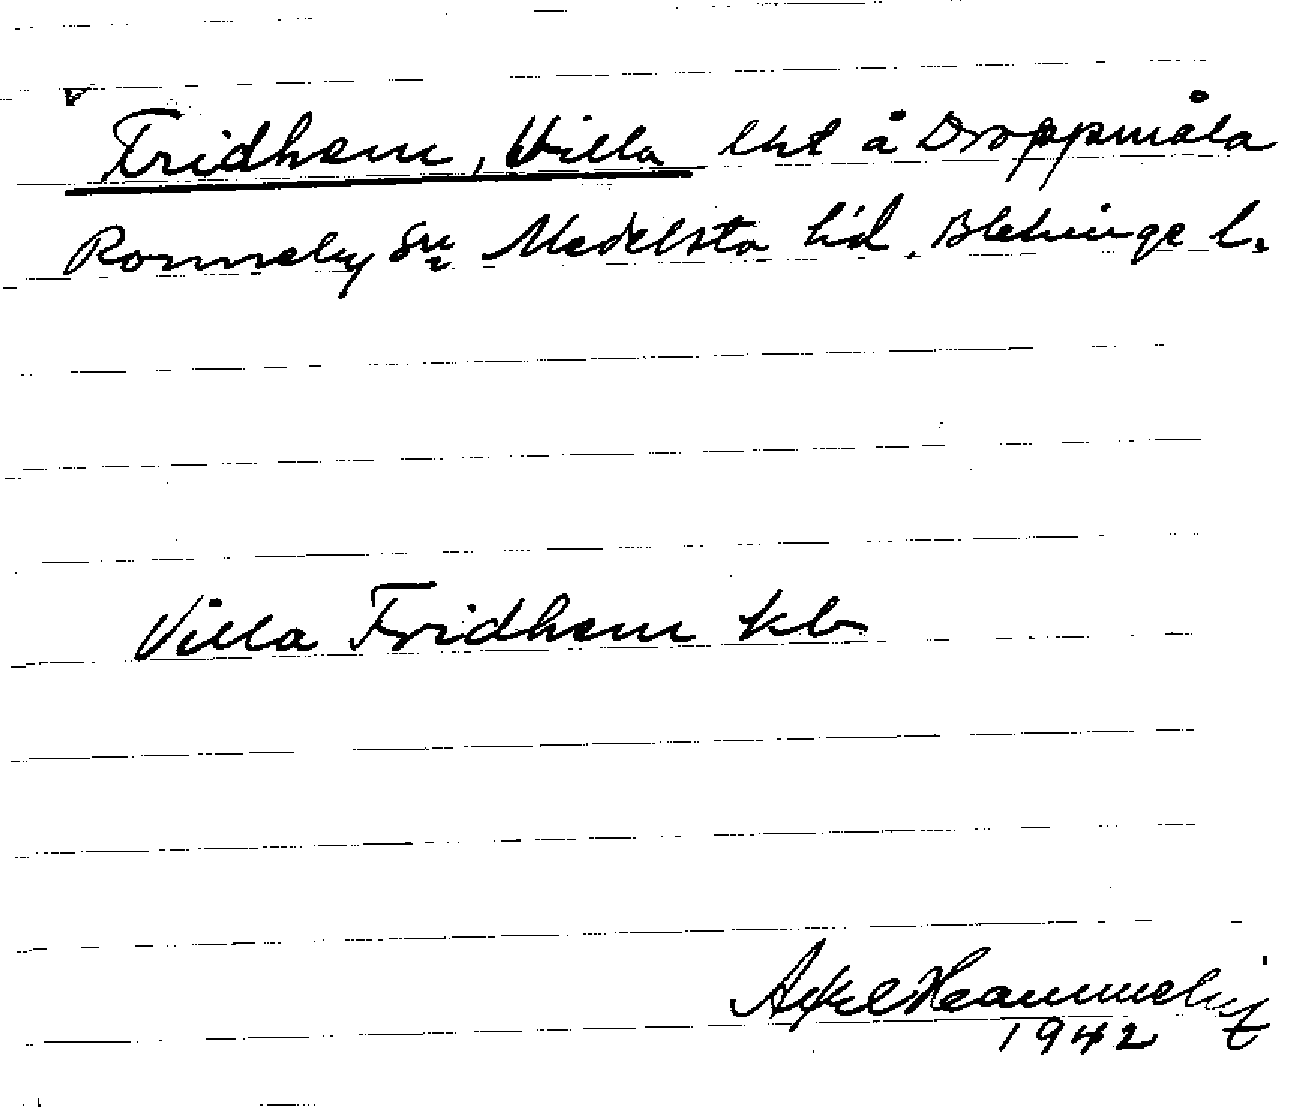 Fridhem, Villa lht å Droppmåla
Ronneby Sn Medelsta hd. Blekinge l.
Villa Fridhem kb
Axel Hammelij
1942